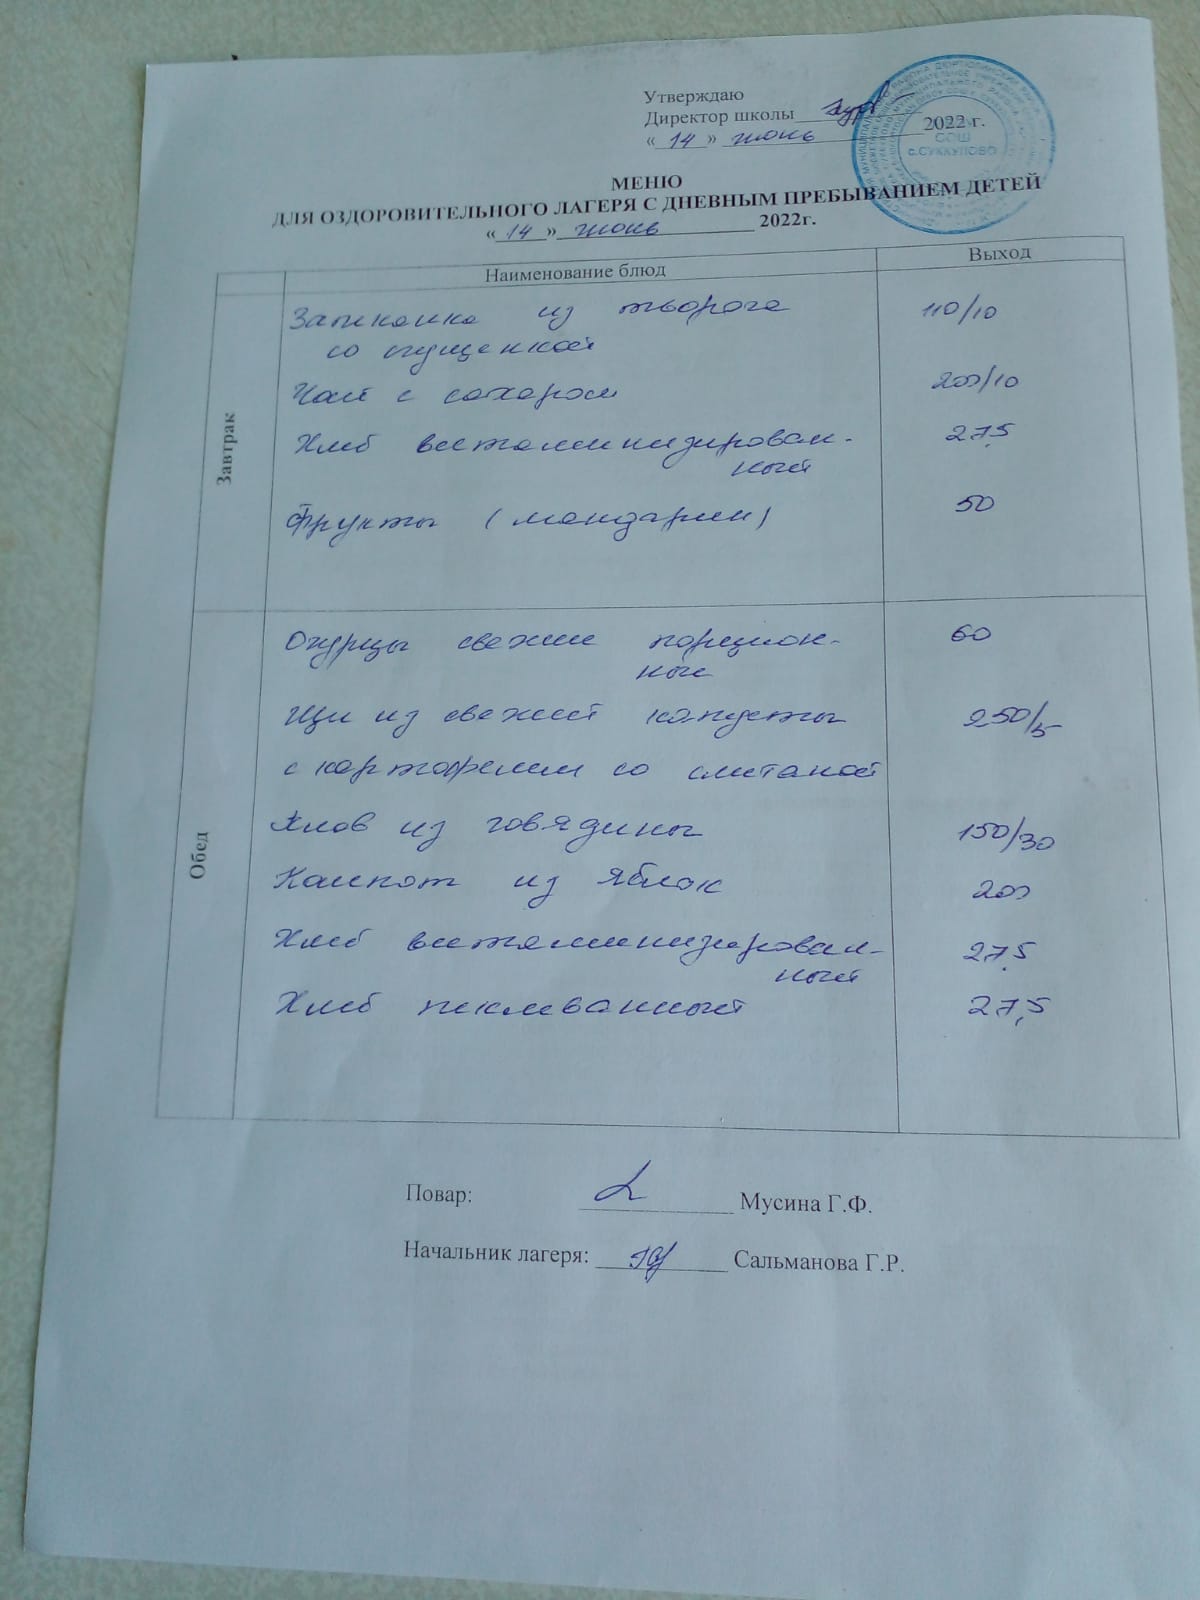 Утверждаю
Директор школы
« 14 » июнь 2022 г.
СОШ
с.СУККУЛОВО
МЕНЮ
ДЛЯ ОЗДОРОВИТЕЛЬНОГО ЛАГЕРЯ С ДНЕВНЫМ ПРЕБЫВАНИЕМ ДЕТЕЙ
« 14 » июнь 2022г.
Наименование блюд Выход
Завтрак
Запеканка из творога 110/10
со сгущенкой
Чай с сахаром 200/10
Хлеб витаминизирован- 27,5
ный
Фрукты (мандарин) 50
Обед
Огурцы свежие порцион- 60
ные
Щи из свежей капусты 250/5
с картофелем со сметаной
Плов из говядины 150/30
Компот из яблок 200
Хлеб витаминизирован- 27,5
ный
Хлеб пеклеванный 27,5
Повар: Мусина Г.Ф.
Начальник лагеря: Сальманова Г.Р.